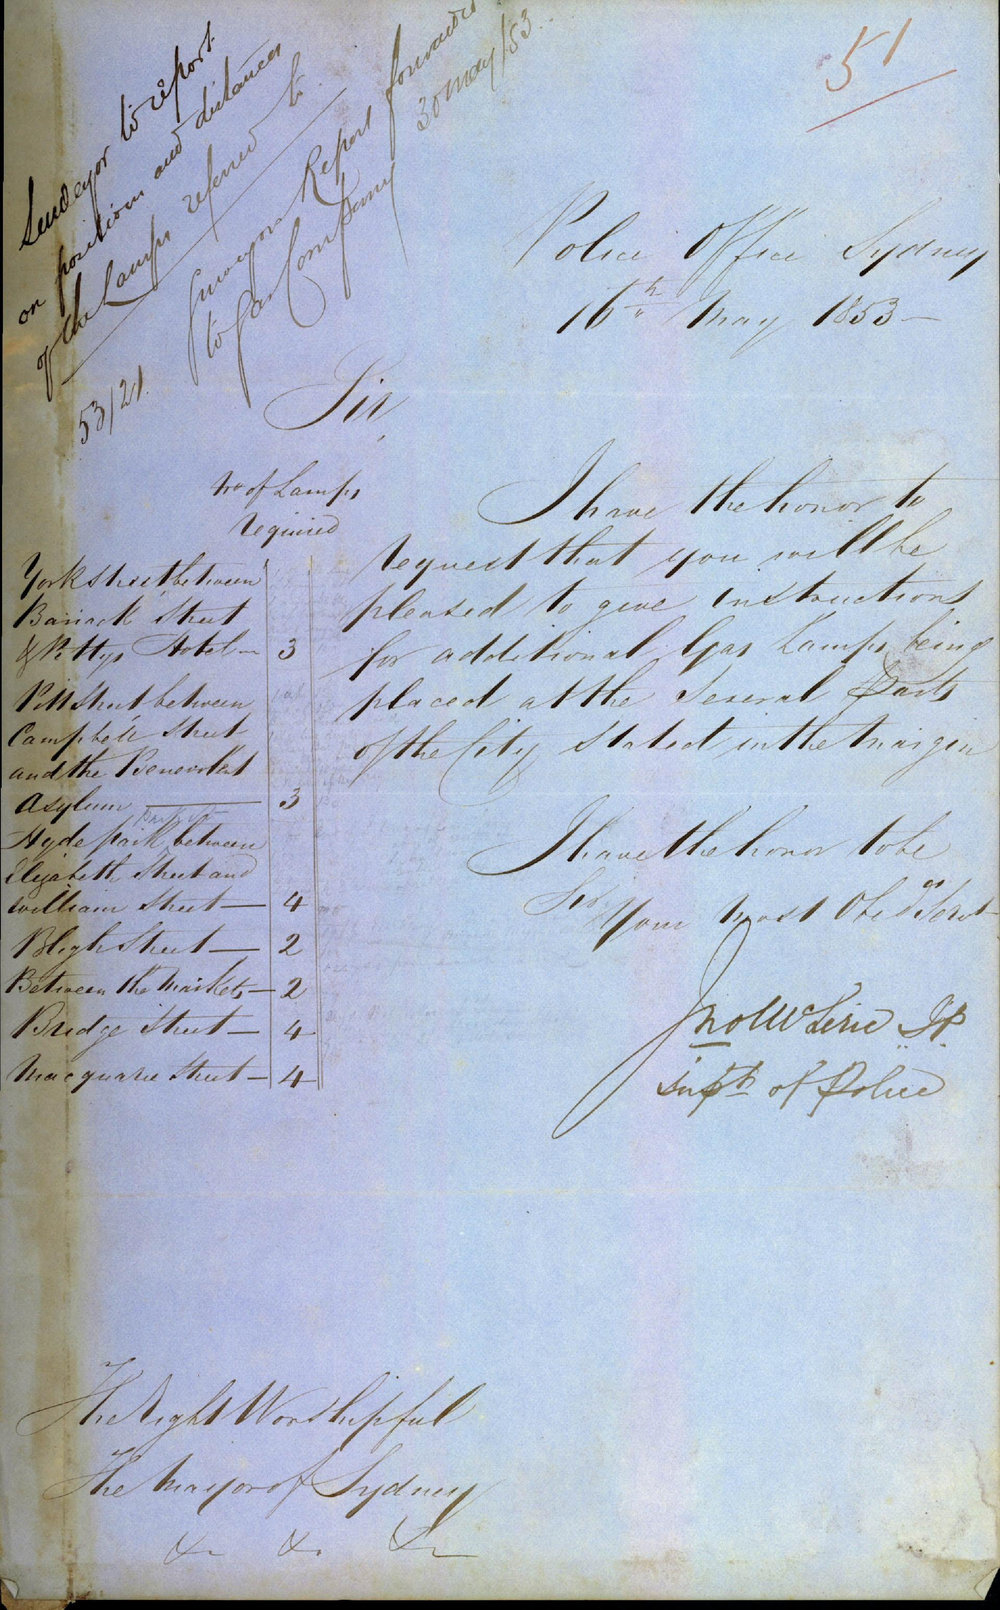 51
Surveyor to report
on positions and distances
of the Lamps referred to
Surveyors Report forwarded
to Gas Company 30 May/53.
53/21.
Police Office Sydney
16th May 1853 —
Sir,
I have the honor to
request that you will be
pleased to give instructions
for additional Gas Lamps being
placed at the several parts
of the City stated in the margin
No of Lamps
required
York street between
Barrack Street
& Pettys Hotel — 3
Pitt Street between
Campbell Street
and the Benevolent
Asylum — 3
Hyde park between
Elizabeth Street and
William Street — 4
Bligh Street — 2
Between the Markets — 2
Bridge Street — 4
Macquarie Street — 4
I have the honor to be
Sir
Your most Obedt Servt
Jno McLerie JP.
Supt of Police
The Right Worshipful
The Mayor of Sydney
&c &c &c